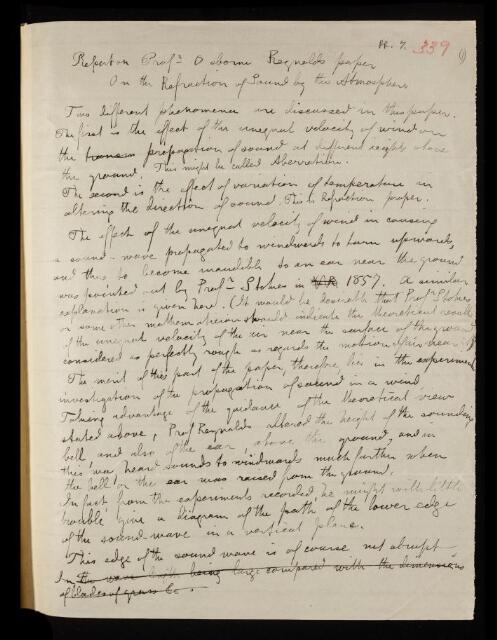 RR. 7. 339 (1)
Report on Prof.r Osborne Reynolds paper
On the Refraction of Sound by the Atmosphere
Two different phenomena are discussed in this paper.
The first is the effect of the unequal velocity of wind on
the propagation of sound at different heights above
the ground. This might be called Aberration.
The second is the effect of variation of temperature in
altering the direction of sound. This is Refraction proper.
The effect of the unequal velocity of wind in causing
a sound-wave propagated to windwards to turn upwards,
and thus to become inaudible to an ear near the ground
was pointed out by Prof.r Stokes in 1857. A similar
explanation is given here. (It would be desirable that Prof.r Stokes
or some other mathematician should indicate the theoretical result
of the unequal velocity of the air near the surface of the ground
considered as perfectly rough as regards the motion of air near it)
The merit of this part of the paper, therefore, lies in the experimental
investigation of the propagation of sound in a wind.
Taking advantage of the guidance of the theoretical view
stated above, Prof Reynolds altered the height of the sounding
bell and also of the ear above the ground, and in
this way heard sounds to windwards much further when
the bell or the ear was raised from the ground.
In fact from the experiments recorded, he might with little
trouble give a diagram of the path of the lower edge
of the sound-wave in a vertical plane.
This edge of the sound wave is of course not abrupt
In the wave being large compared with the dimensions
of blades of grass &c.